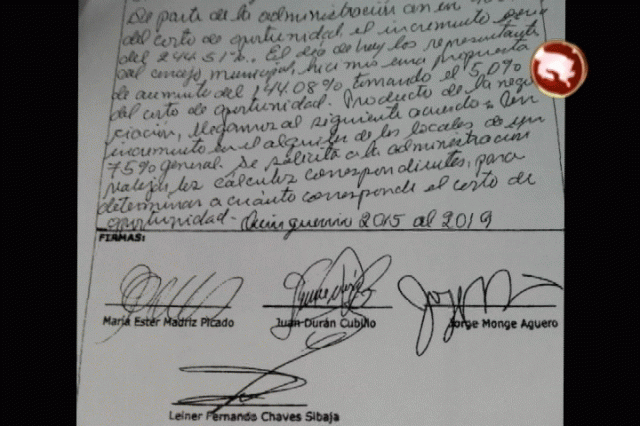 De parte de la administración
del costo de oportunidad el incremento sería
del 244.51%. El día de hoy los representantes
del concejo municipal, hicimos una propuesta
de aumento del 144.08% tomando el 50%
del costo de oportunidad. Producto de la nego
ciación, llegamos al siguiente acuerdo:
incremento en el alquiler de los locales de un
75% general. Se solicita a la administración
realizar los cálculos correspondientes, para
determinar a cuánto corresponde el costo de
oportunidad. 2015 al 2019
FIRMAS:
María Ester Madriz Picado Juan Durán Cubillo Jorge Monge Aguero
Leiner Fernando Chaves Sibaja